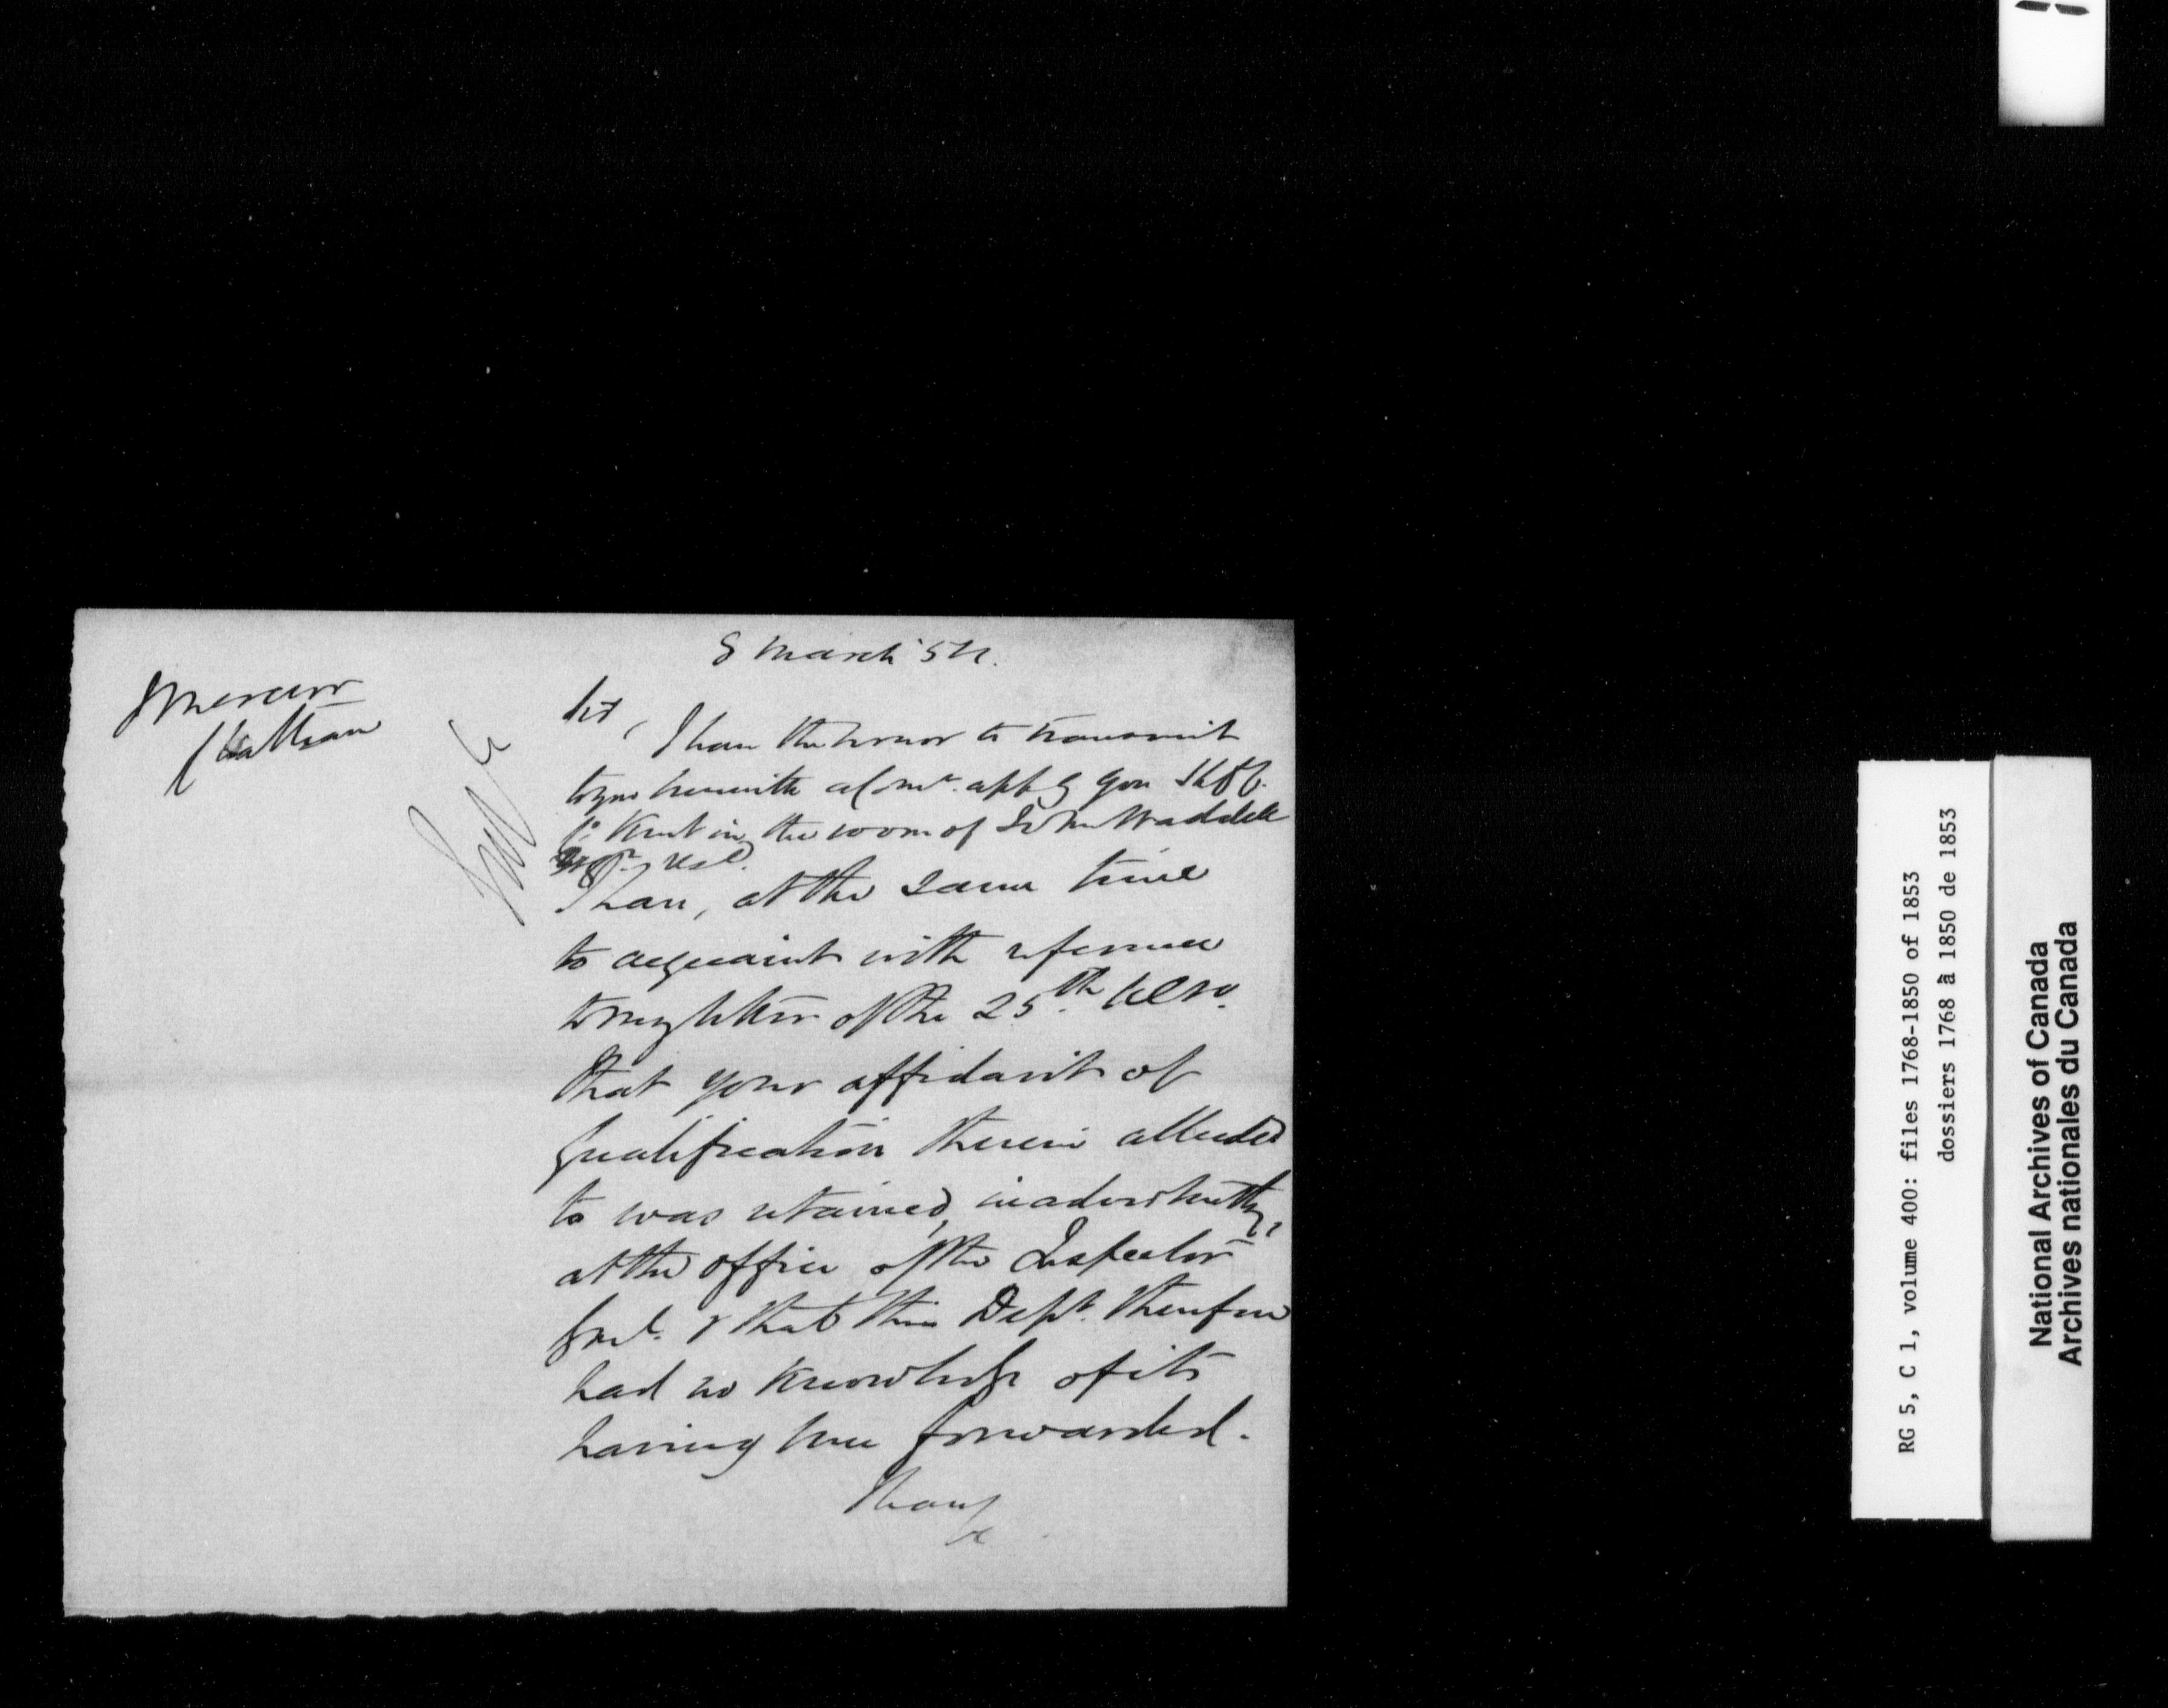 8 March '54.
J Mercer
Chatham
Sir,
I have the honor to transmit
to you herewith a Comn. appg you Shff.
Co Kent in the room of John Waddell
resd.
I have, at the same time
to acquaint with reference
to my letter of the 25th ulto.
that your affidavit of
qualification therein alluded
to was retained, inadvertently,
at the office of the Inspector
Genl. & that this Dept. therefore
had no knowledge of its
having been forwarded.
I have
&c
RG 5, C 1, volume 400: files 1768-1850 of 1853
dossiers 1768 à 1850 de 1853
National Archives of Canada
Archives nationales du Canada